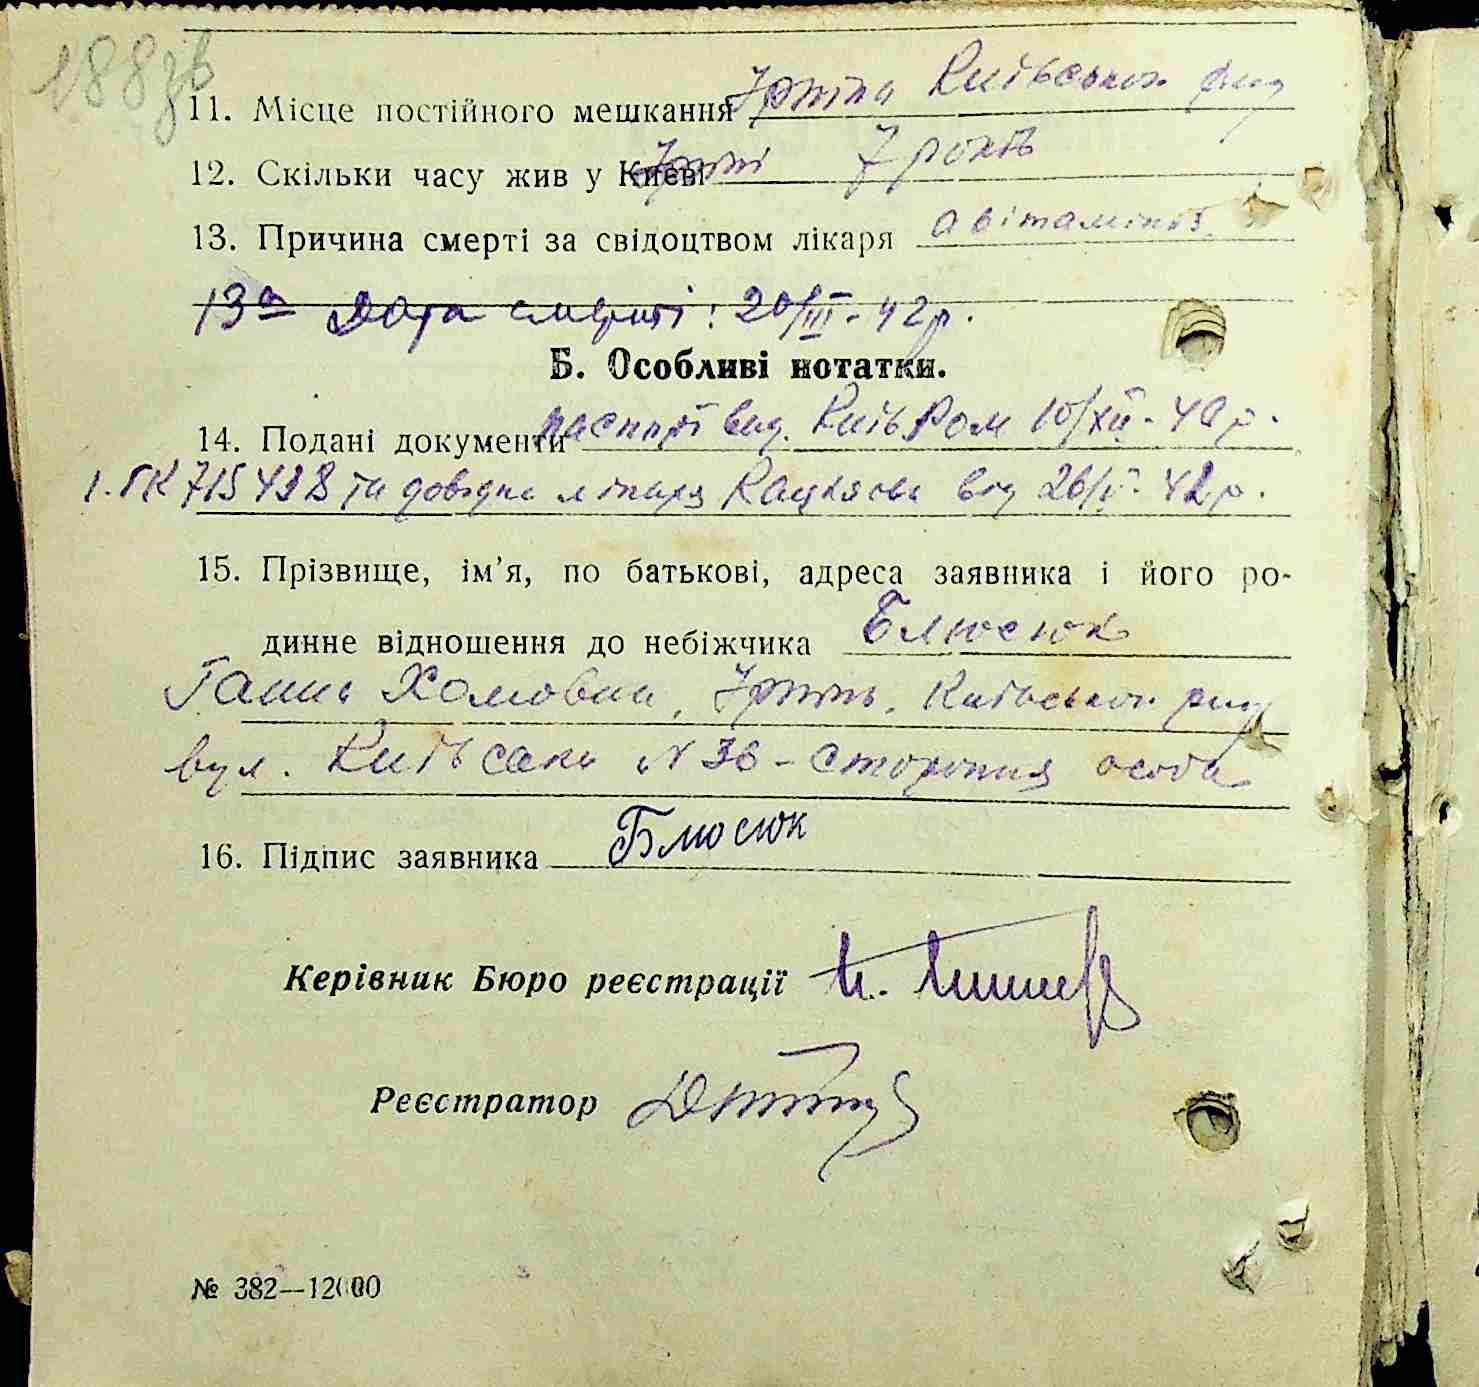 188зв
11. Місце постійного мешкання Ірпінь Київського рай
12. Скільки часу жив у Києві Ірпіні 7 років
13. Причина смерті за свідоцтвом лікаря авітаміноз
13а Дата смерті: 20/III - 42 р.
Б. Особливі нотатки.
14. Подані документи паспорт вид. Київ 10/XII - 40 р.
715498 та довідка лікаря від 26/ - 42 р.
15. Прізвище, ім'я, по батькові, адреса заявника і його ро-
динне відношення до небіжчика Блюсюк
Ганна Хомовна, Ірпінь, Київського рай
вул. Київська N 36 - стороння особа
16. Підпис заявника Блюсюк
Керівник Бюро реєстрації
Реєстратор
№ 382—12000